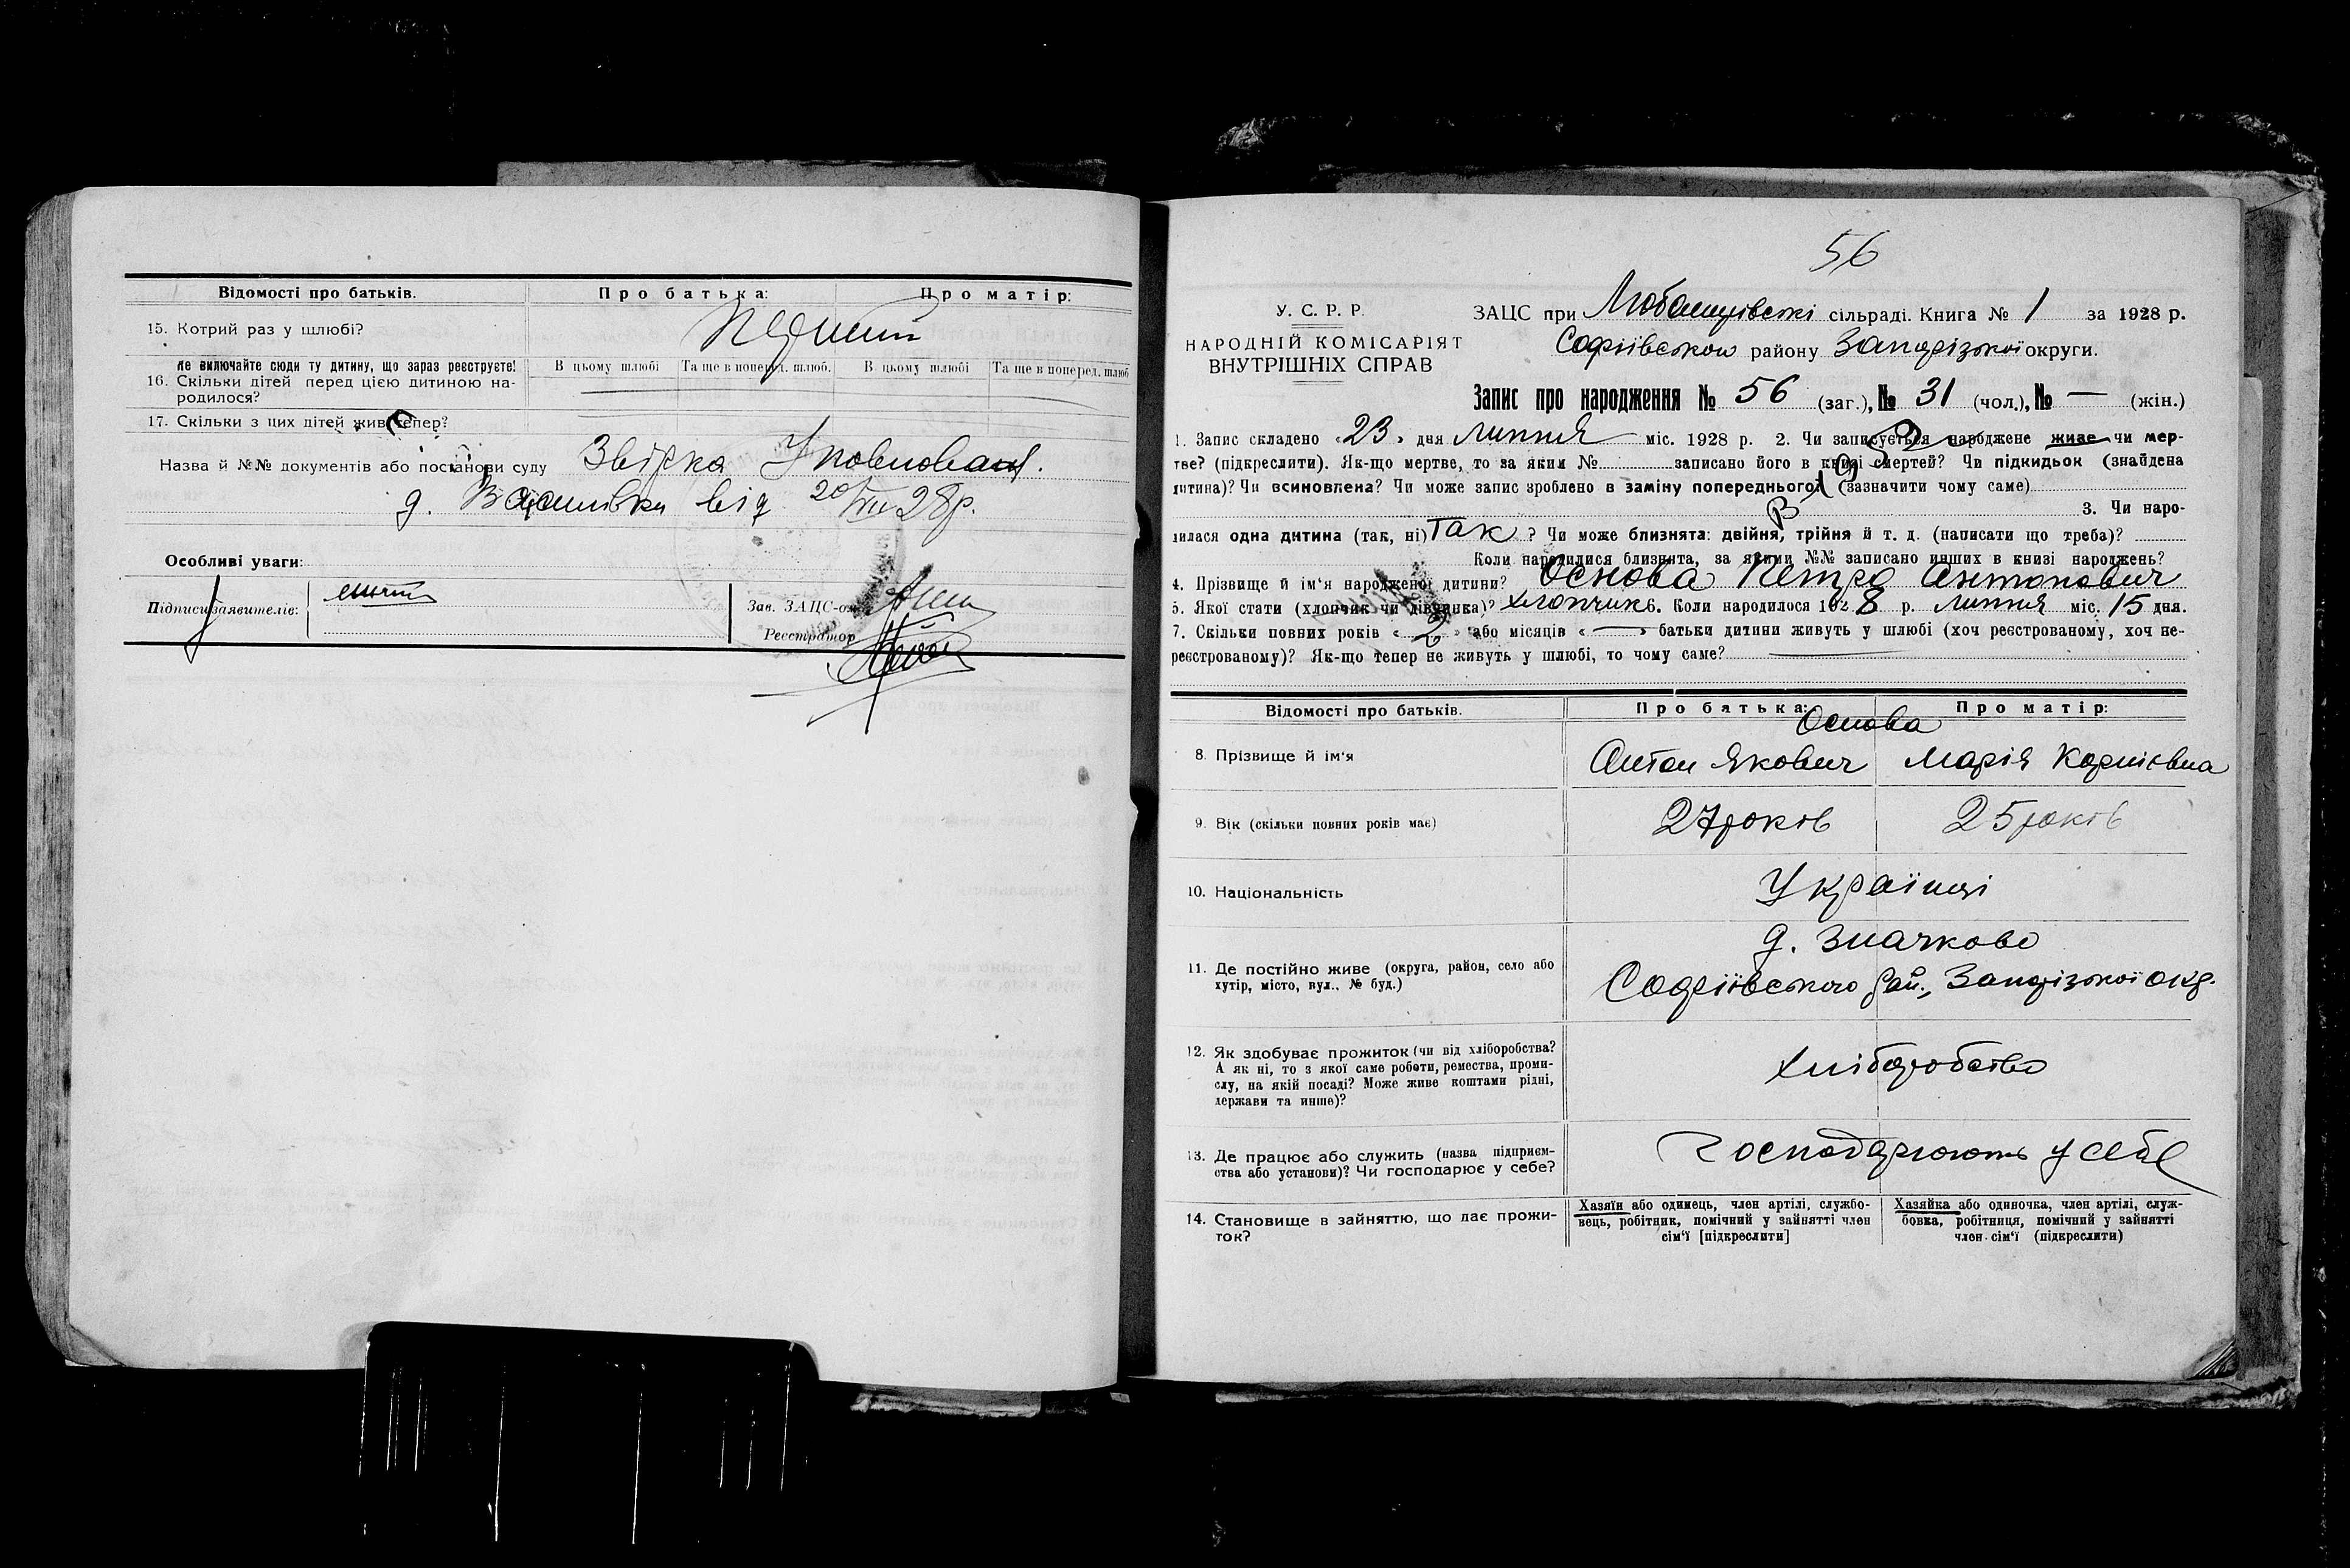 Відомості про батьків. Про батька: Про матір:
15. Котрий раз у шлюбі? Перший
Не включайте сюди ту дитину, що зараз реєструєте!
16. Скільки дітей перед цією дитиною на-
родилося?
В цьому шлюбі Та ще в поперед. шлюб. В цьому шлюбі Та ще в поперед. шлюб
17. Скільки з цих дітей живе тепер?
Назва й №№ документів або постанови суду Звірка Уповноваж.
д. від 20/VII 28р.
Особливі уваги:
Підписи заявителів:
Зав. ЗАЦС-ом
Реєстратор
56
У. С. Р. Р.
НАРОДНІЙ КОМІСАРІЯТ
ВНУТРІШНІХ СПРАВ
ЗАЦС при сільраді. Книга № 1 за 1928 р.
Софіївського району Запорізької округи.
Запис про народження № 56 (заг.), № 31 (чол.), № — (жін.)
1. Запис складено «23» дня Липня міс. 1928 р. 2. Чи записується народжене живе чи мер-
тве? (підкреслити). Як-що мертве, то за яким № записано його в книзі смертей? Чи підкидьок (знайдена
дитина)? Чи всиновлена? Чи може запис зроблено в заміну попереднього? (зазначити чому саме)
3. Чи наро-
дилася одна дитина (так, ні) Так ? Чи може близнята: двійня, трійня й т. д. (написати що треба)?
Коли народилися близнята, за якими №№ записано инших в книзі народжень?
4. Прізвище й ім'я народженої дитини? Основа Петро Антонович
5. Якої стати (хлопчик чи дівчинка)? хлопчик 6. Коли народилося 1928 р. липня міс. 15 дня.
7. Скільки повних років «2» або місяців «—» батьки дитини живуть у шлюбі (хоч реєстрованому, хоч не-
реєстрованому)? Як-що тепер не живуть у шлюбі, то чому саме?
Відомості про батьків. Про батька: Про матір:
Основа
8. Прізвище й ім'я Антон Якович Марія Корніївна
9. Вік (скільки повних років має) 27 років 25 років
10. Національність Українці
д. Значково
11. Де постійно живе (округа, район, село або
хутір, місто, вул., № буд.) Софіївського Рай., Запорізької окр.
12. Як здобуває прожиток (чи від хліборобства?
А як ні, то з якої саме роботи, ремества, проми-
слу, на якій посаді? Може живе коштами рідні,
держави та инше)?
хліборобство
13. Де працює або служить (назва підприєм-
ства або установи)? Чи господарює у себе?
Господарюють у себе
14. Становище в зайняттю, що дає прожи-
ток?
Хазяїн або одинець, член артілі, службо-
вець, робітник, помічний у зайнятті член
сім'ї [підкреслити]
Хазяйка або одиночка, член артілі, служ-
бовка, робітниця, помічний у зайнятті
член сім'ї (підкреслити)